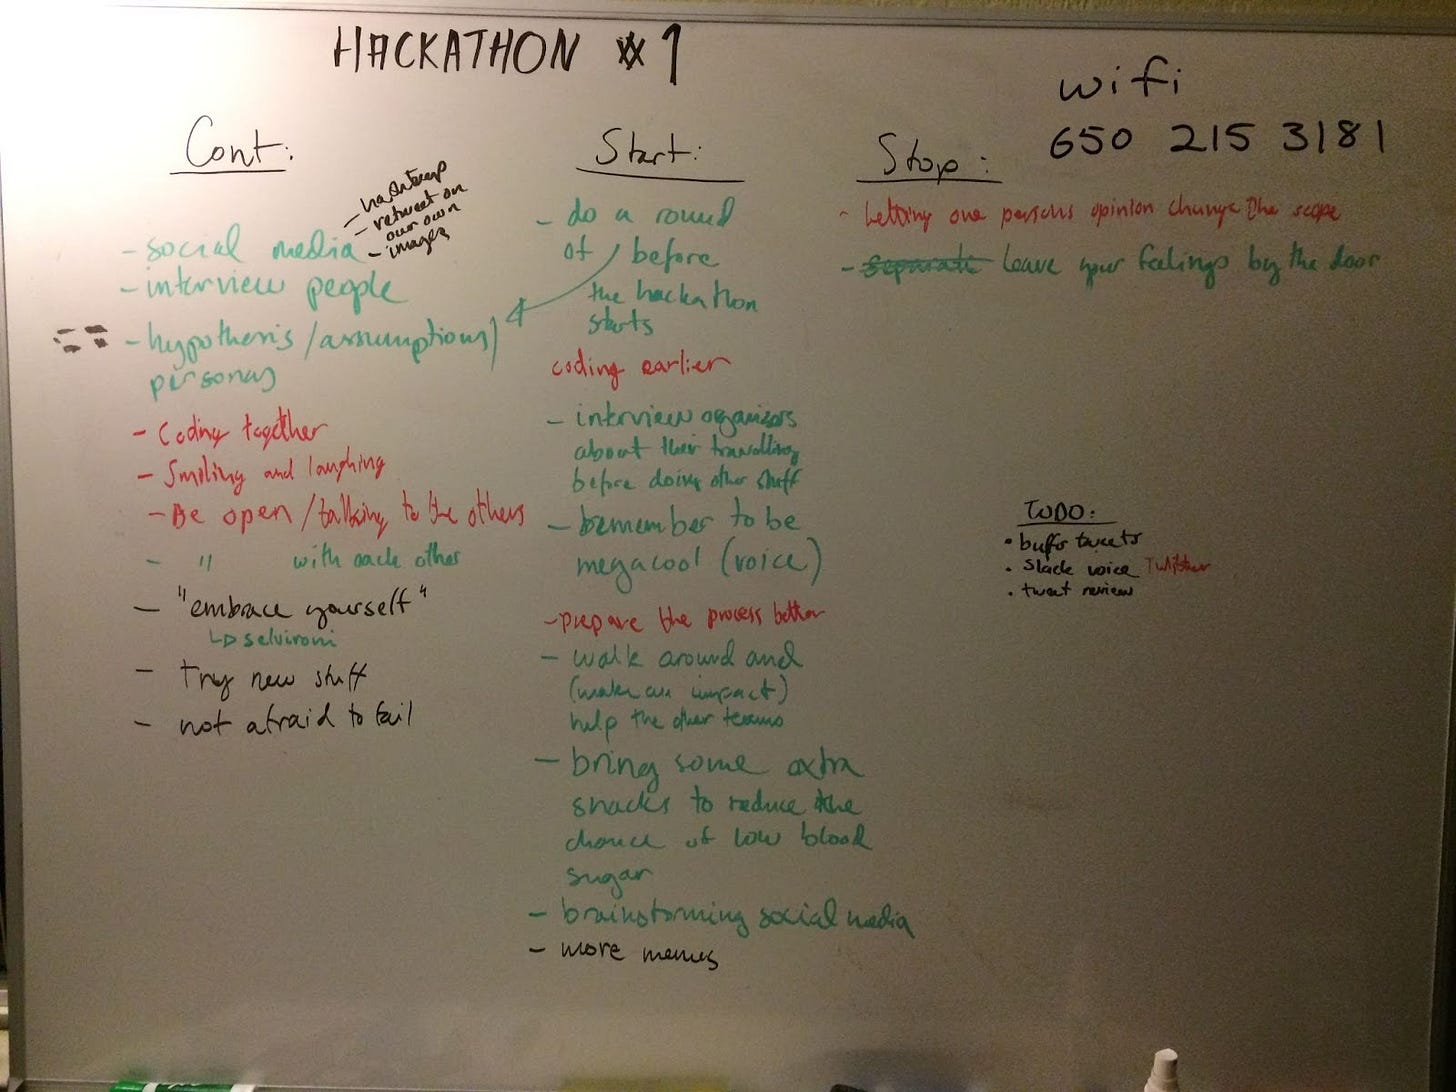 HACKATHON #1
wifi
650 215 3181
Cont:
- hashtags
- retweet on
our own
- images
- social media
- interview people
- hypothesis/assumptions)
personas
- Coding together
- Smiling and laughing
- Be open/talking to the others
- " with each other
- "embrace yourself"
selvironi
- Try new stuff
- not afraid to fail
Start:
- do a round
of before
the hackathon
starts
coding earlier
- interview organizors
about their travelling
before doing other stuff
- remember to be
megacool (voice)
- prepare the process better
- walk around and
(make an impact)
help the other teams
- bring some extra
snacks to reduce the
chance of low blood
sugar
- brainstorming social media
- more memes
Stop:
- Letting one persons opinion change the scope
- separate leave your feelings by the door
TODO:
• buffr tweets
• Slack voice Twitter
• tweet review